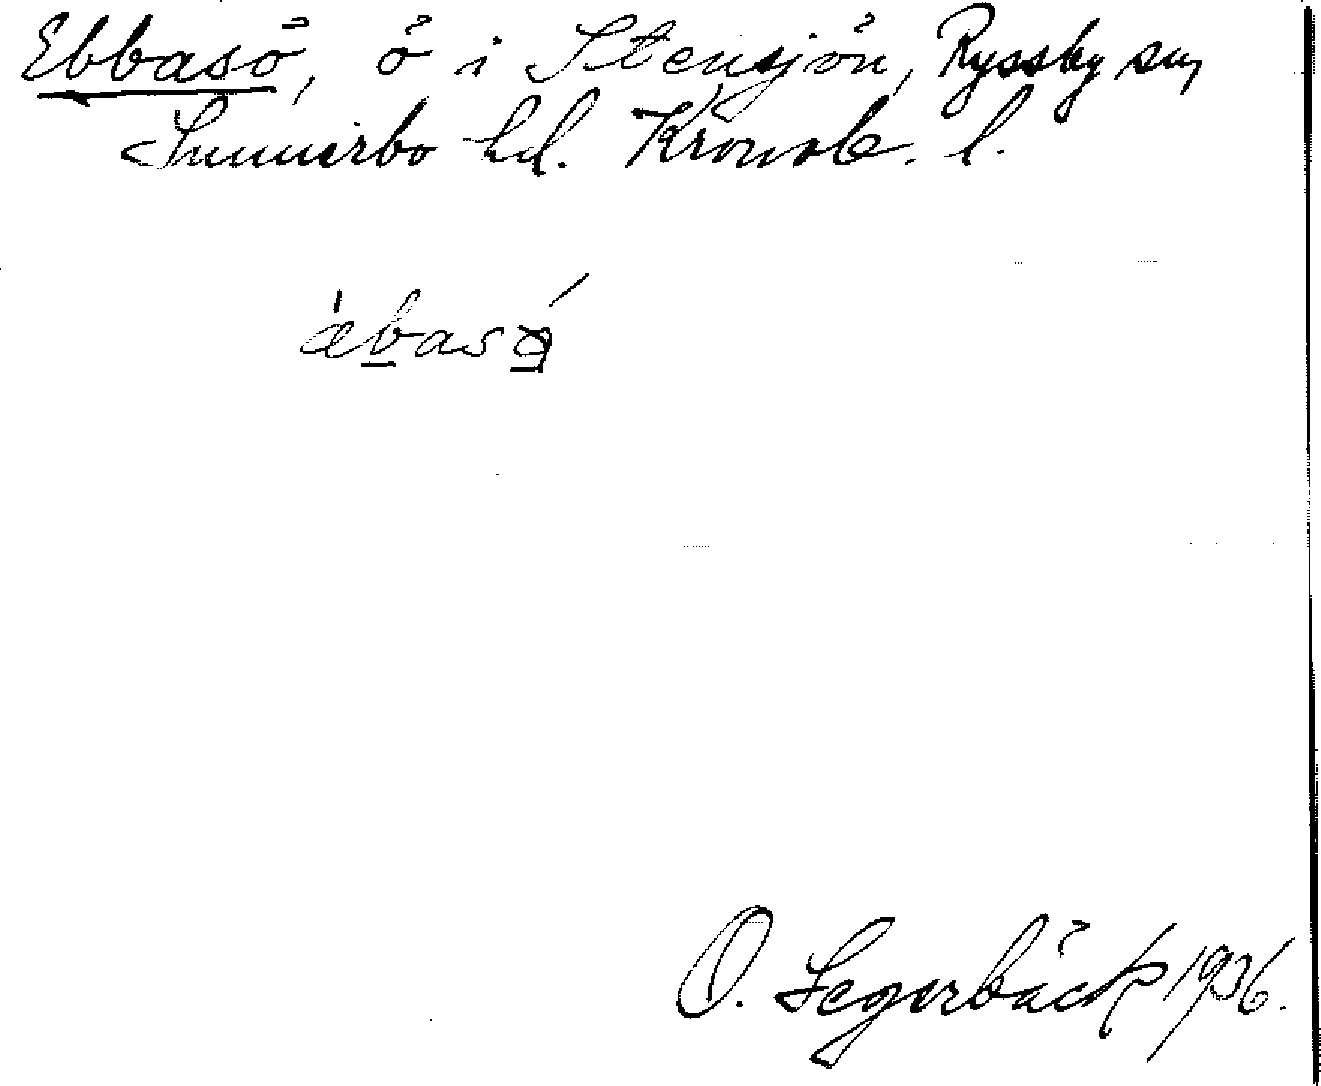 Ebbasö, ö i Stensjön, Ryssby sn,
Sunnerbo hd. Kronob. l.
O. Segerbäck 1936.